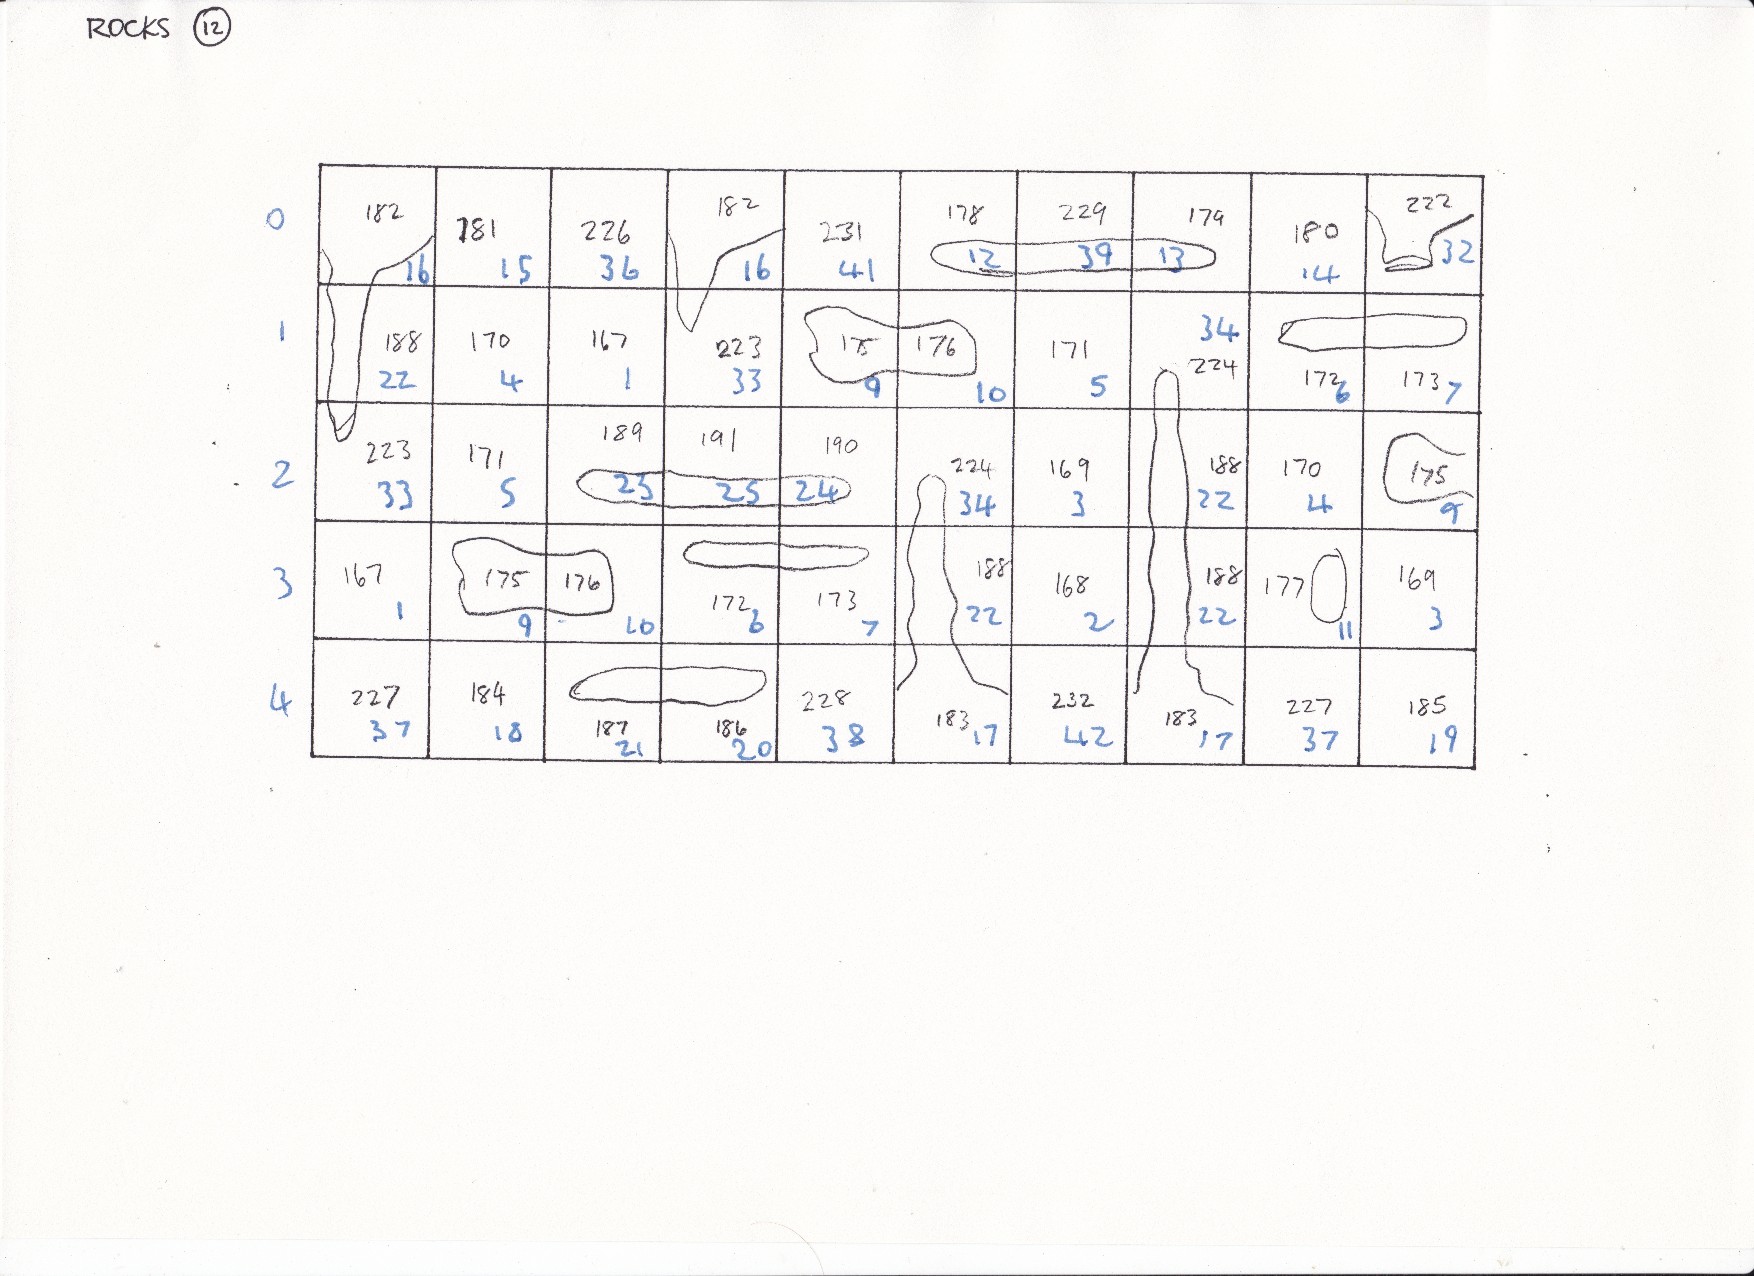 ROCKS 12
0 182 16 181 15 226 36 182 16 231 41 178 12 229 39 179 13 180 14 222 32
1 188 22 170 4 167 1 223 33 175 9 176 10 171 5 34 224 172 6 173 7
2 223 33 171 5 189 23 191 25 190 24 224 34 169 3 188 22 170 4 175 9
3 167 1 175 9 176 10 172 6 173 7 188 22 168 2 188 22 177 11 169 3
4 227 37 184 18 187 21 186 20 228 38 183 17 232 42 183 17 227 37 185 19